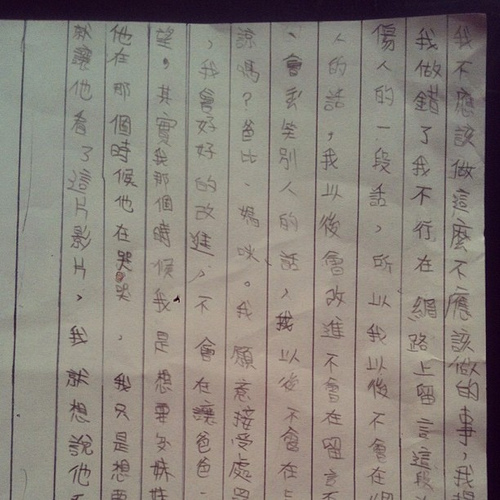 我不應該做這麼不應該做的事,我
我做錯了我不行在網路上留言這段
傷人的一段話,所以我以後不會在
人的話,我以後會改進不會在留言
、會丟笑別人的話,我以後不會在
諒嗎?爸比、媽咪。我願意接受處
,我會好好的改進,不會在讓爸爸
望。其實我那個時候我是想要
他在那個時候他在哭哭,我只是想要
就讓他看了這片影片,我就想說他